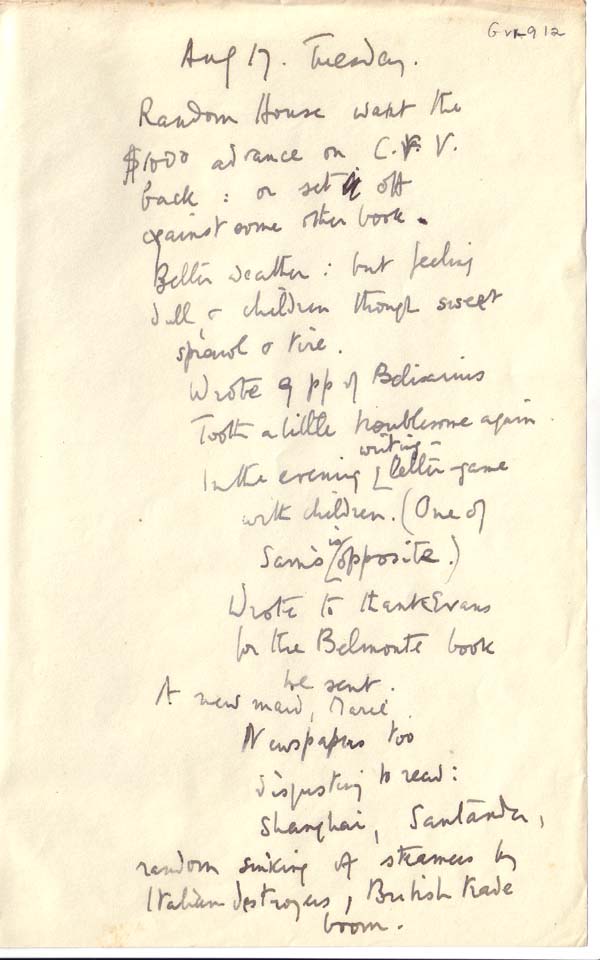 Gvr 912
Aug 17. Tuesday.
Random House want the
$1000 advance on C. & V.
back : or set it off
against some other book.
Better weather : but feeling
dull, & children though sweet
sprawl & tire.
Wrote 9 pp of Belisarius
Tooth a little troublesome again.
writing-
In the evening letter-game
with children. (One of
is
Sam's opposite.)
Wrote to thank Evans
for the Belmonte book
he sent.
A new maid, Marie.
Newspapers too
disgusting to read:
Shanghai, Santander,
random sinking of steamers by
Italian destroyers, British trade
boom.